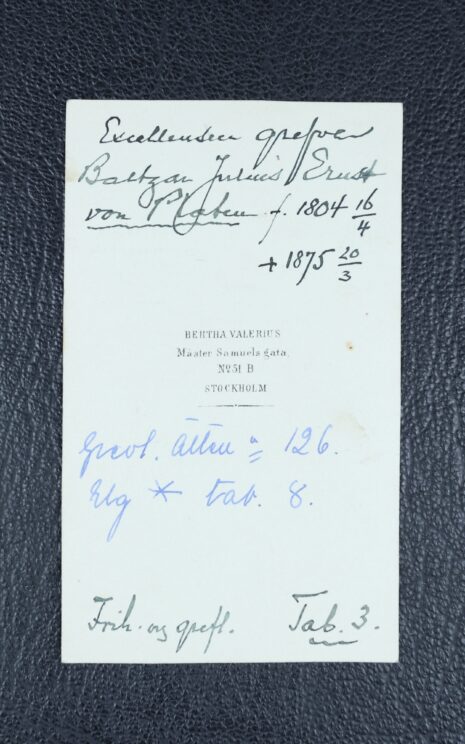 Excellensen grefven
Baltzar Julius Ernst
von Platen f. 1804 16/4
+ 1875 20/3
BERTHA VALERIUS
Mäster Samuels gata,
No 51 B
STOCKHOLM
Grevl. Ätten n = 126.
Elg * tab. 8.
Frih. og grefl. Tab. 3.